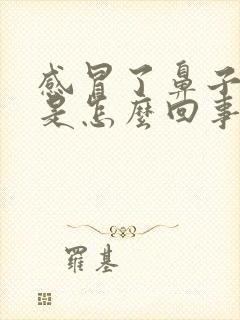 感冒了鼻子
是怎麼回事
羅基